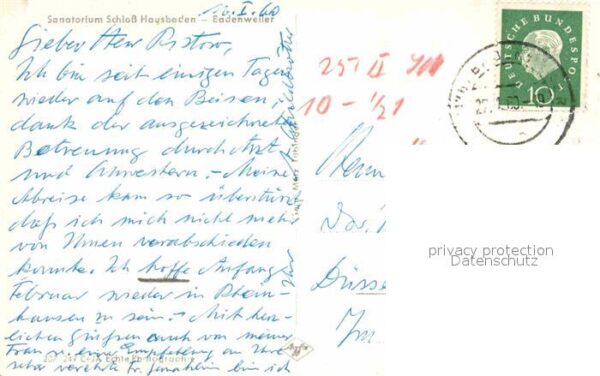 Sanatorium Schloß Hausbaden – Badenweiler
26.I.60
Lieber Herr Ristow,
Ich bin seit einigen Tagen
wieder auf den Beinen,
dank der ausgezeichneten
Betreuung durch Arzt
und Schwestern. – Meine
Abreise kam so überstürzt
daß ich mich nicht mehr
von Ihnen verabschieden
konnte. Ich hoffe Anfang
Februar wieder in Rhein-
hausen zu sein. – Mit herz-
lichen Grüßen auch von meiner
Frau u. eine Empfehlung an Ihre
sehr verehrte Fr. Gemahlin bin ich
Ihr
Echte Photographie
25 II
10 – 1/21
DEUTSCHE BUNDESPOST
10
Herrn
Düsse
Im
privacy protection
Datenschutz